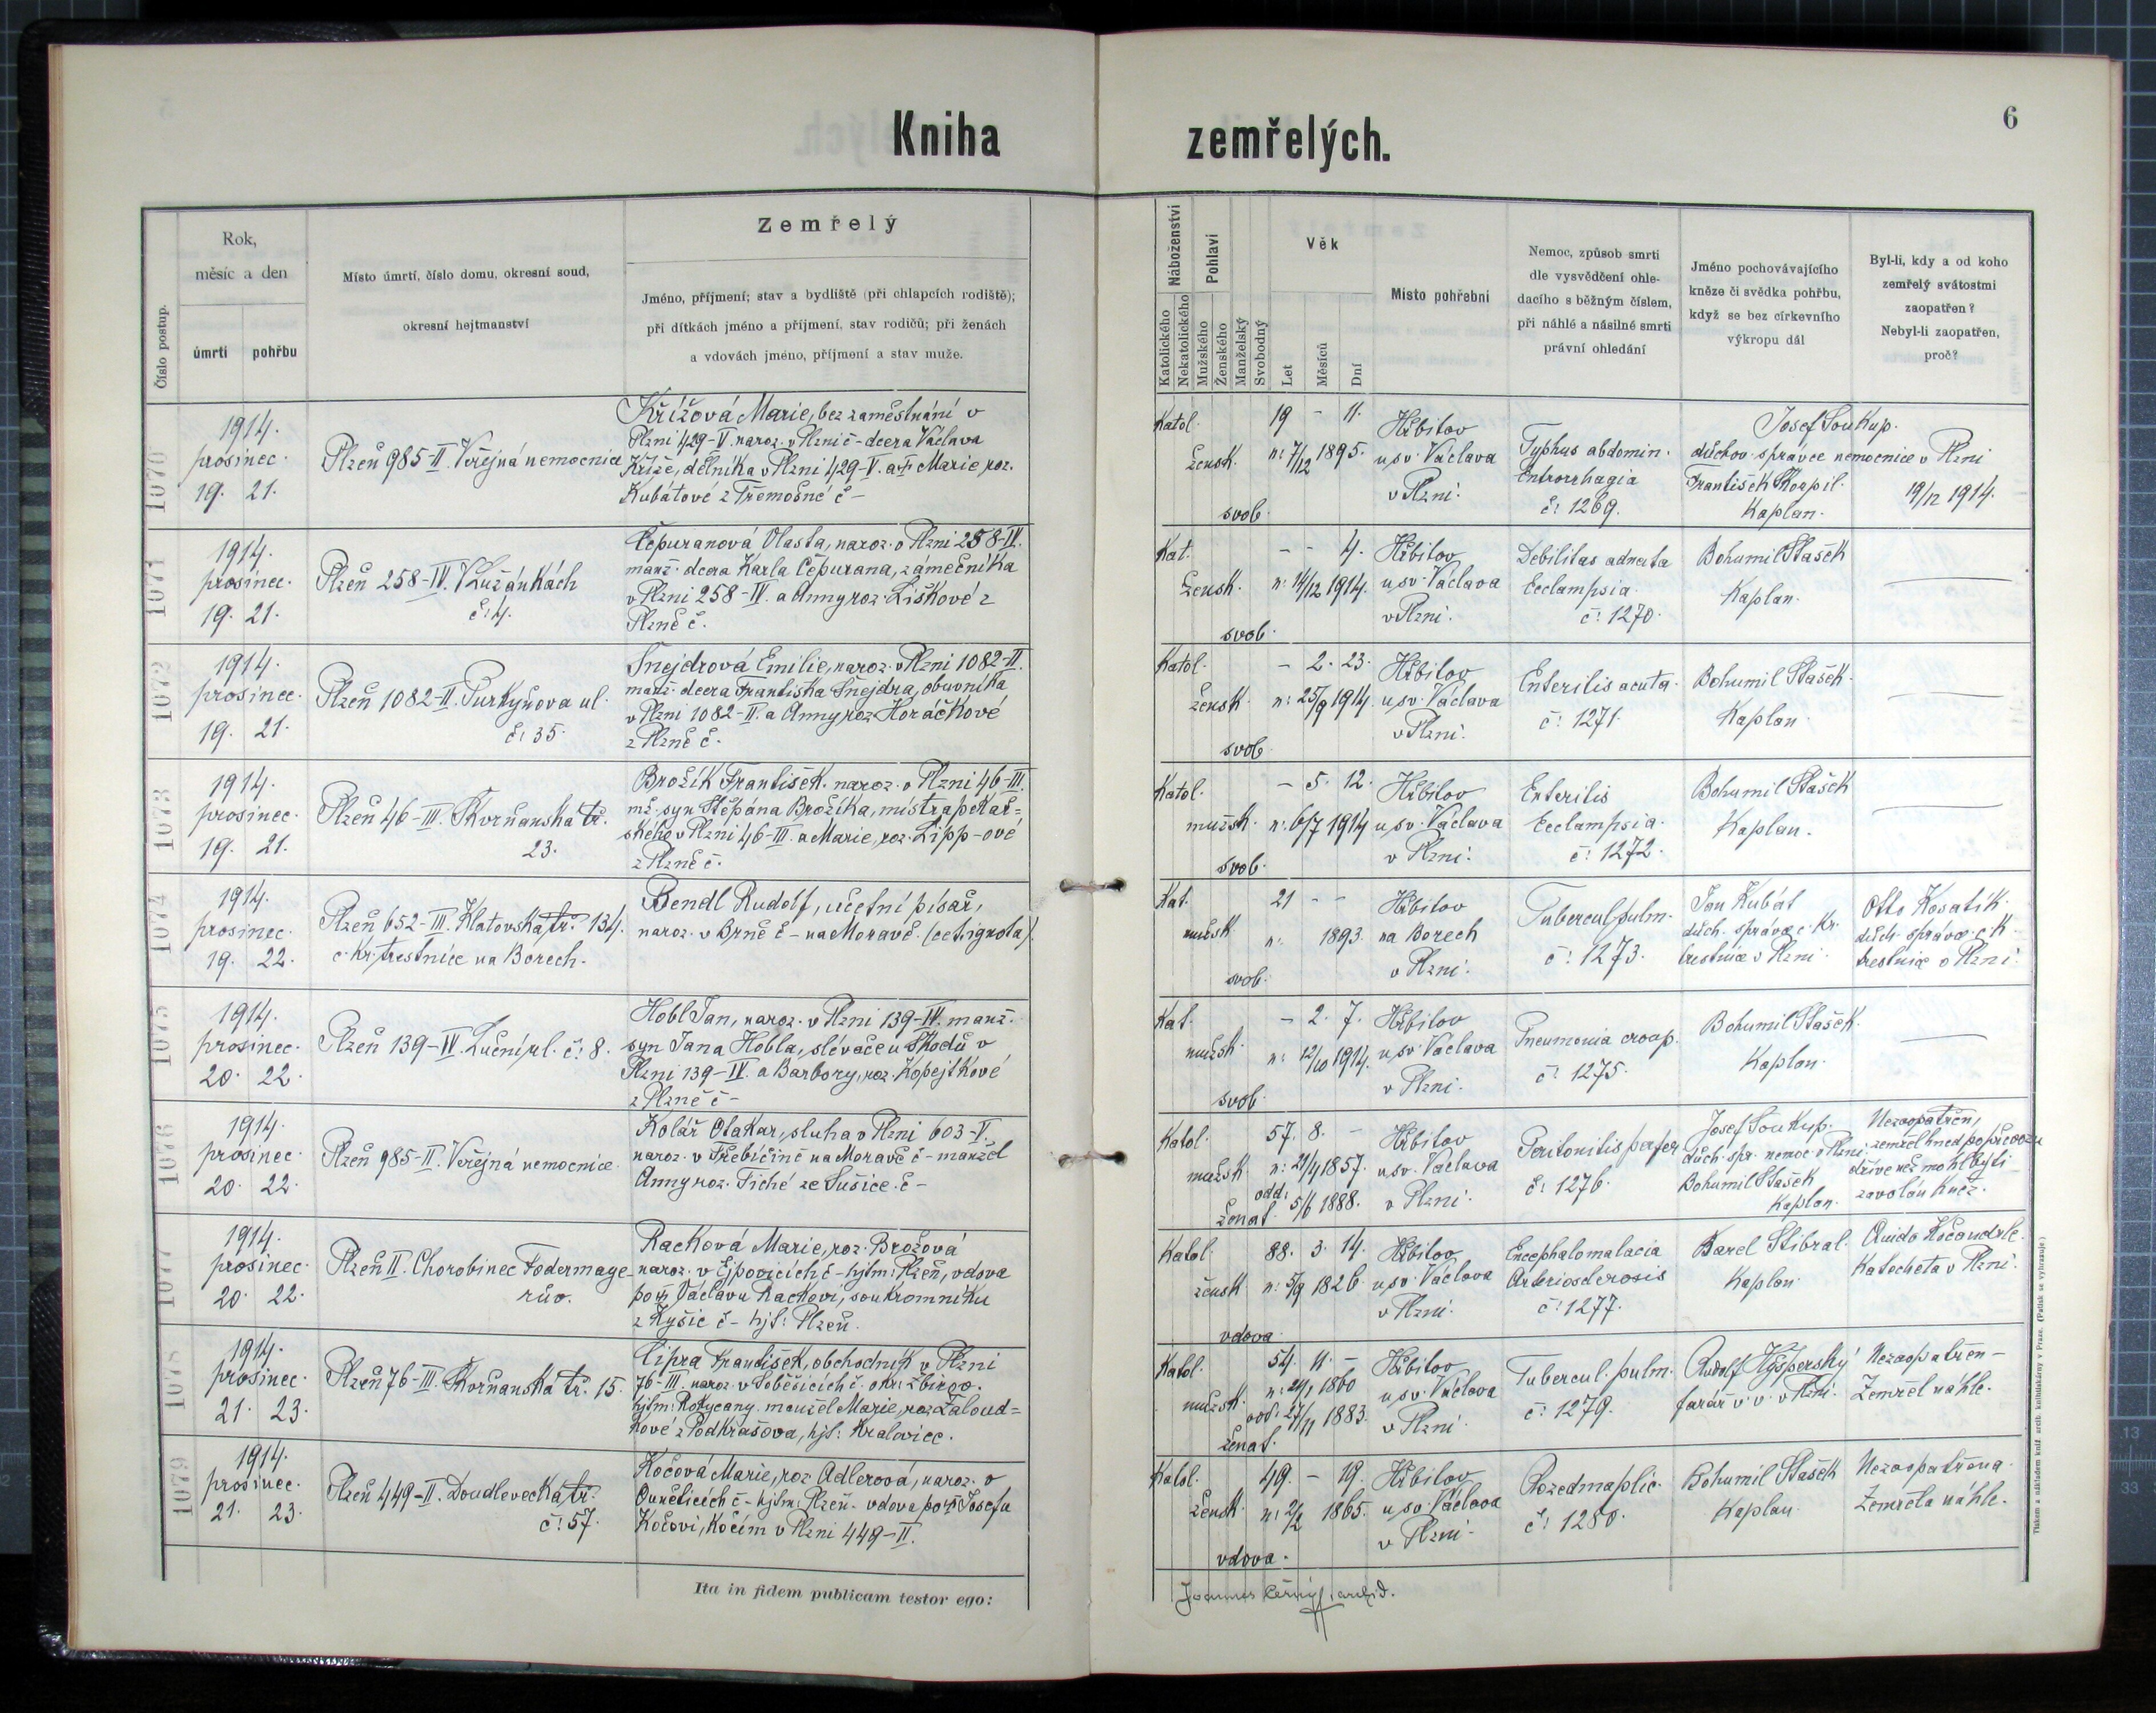 Kniha zemřelých.
6
Číslo postup.
Rok,
měsíc a den
úmrtí
pohřbu
Místo úmrtí, číslo domu, okresní soud,
okresní hejtmanství
Zemřelý
Jméno, příjmení; stav a bydliště (při chlapcích rodiště);
při dítkách jméno a příjmení, stav rodičů; při ženách
a vdovách jméno, příjmení a stav muže.
Náboženství
Katolického
Nekatolického
Pohlaví
Mužského
Ženského
Manželský
Svobodný
Věk
Let
Měsíců
Dní
Místo pohřební
Nemoc, způsob smrti
dle vysvědčení ohle-
dacího s běžným číslem,
při náhlé a násilné smrti
právní ohledání
Jméno pochovávajícího
kněze či svědka pohřbu,
když se bez církevního
výkropu dál
Byl-li, kdy a od koho
zemřelý svátostmi
zaopatřen?
Nebyl-li zaopatřen,
proč?
1070
1914.
prosinec.
19. 21.
Plzeň 985-II. Veřejná nemocnice
Křížová Marie, bez zaměstnání v
Plzni 429-V. naroz. v Plzni č - dcera Václava
Kříže, dělníka v Plzni 429-V. a Marie, roz.
Kubátové z Třemošné č -
Katol.
žensk.
svob.
19 - 11.
n: 7/12 1895.
Hřbitov
u sv. Václava
v Plzni.
Typhus abdomin.
Entrorrhagia
č: 1269.
Josef Soukup.
duchov. správce nemocnice v Plzni
František Skorpil.
Kaplan.
19/12 1914.
1071
1914.
prosinec.
19. 21.
Plzeň 258-IV. V Lužánkách
č: 4.
Čepuranová Vlasta, naroz. v Plzni 258-IV.
manž. dcera Karla Čepurana, zámečníka
v Plzni 258-IV. a Anny roz. Liškové z
Plzně č.
Kat.
žensk.
svob.
- - 4.
n: 14/12 1914.
Hřbitov
u sv. Václava
v Plzni.
Debilitas adnata
Eclampsia.
č: 1270.
Bohumil Stašek
Kaplan.
1072
1914.
prosinec.
19. 21.
Plzeň 1082-II. Purkyňova ul.
č: 35.
Šnejdrová Emilie, naroz. v Plzni 1082-II.
manž. dcera Františka Šnejdra, obuvníka
v Plzni 1082-II. a Anny, roz. Horáčkové
z Plzně č.
Katol.
žensk.
svob.
- 2. 23.
n: 25/9 1914.
Hřbitov
u sv. Václava
v Plzni.
Enteritis acuta.
č: 1271.
Bohumil Stašek.
Kaplan.
1073
1914.
prosinec.
19. 21.
Plzeň 46-III. Skvrňanská tř.
23.
Brožík František. naroz. v Plzni 46-III.
mž. syn Štěpána Brožíka, mistra pekař=
ského v Plzni 46-III. a Marie, roz. Lipp-ové
z Plzně č.
Katol.
mužsk.
svob.
- 5. 12.
n: 6/7 1914
Hřbitov
u sv. Václava
v Plzni.
Enteritis
Ecclampsia.
č: 1272.
Bohumil Stašek
Kaplan.
1074
1914.
prosinec.
19. 22.
Plzeň 652-III. Klatovská tř. 134.
c. kr. trestnice na Borech.
Bendl Rudolf, účetní písař,
naroz. v Brně č - na Moravě. (cet. ignota).
Kat.
mužsk.
svob.
21 - -
n: 1893.
Hřbitov
na Borech
v Plzni.
Tubercul. pulm.
č: 1273.
Jan Kubát
duch. správce c. kr.
trestnice v Plzni.
Otto Kosatík.
duch. správce c. k.
trestnice v Plzni.
1075
1914.
prosinec.
20. 22.
Plzeň 139-IV. Luční ul. č: 8.
Hobl Jan, naroz. v Plzni 139-IV. manž.
syn Jana Hobla, slévače u Škodů v
Plzni 139-IV. a Barbory, roz. Kopejtkové
z Plzně č -
Kat.
mužsk.
svob.
- 2. 7.
n: 12/10 1914.
Hřbitov
u sv. Václava
v Plzni.
Pneumonia croup.
č: 1275.
Bohumil Stašek.
Kaplan.
1076
1914.
prosinec.
20. 22.
Plzeň 985-II. Veřejná nemocnice.
Kolář Otakar, sluha v Plzni 603-V.
naroz. v Třebíčíně na Moravě č - manžel
Anny roz. Tiché ze Sušice. č -
Katol.
mužsk.
ženat.
57. 8. -
n: 21/4 1857.
odd: 5/6 1888.
Hřbitov
u sv. Václava
v Plzni.
Peritonitis perfor.
č: 1276.
Josef Soukup.
duch. spr. nemoc. v Plzni.
Bohumil Stašek
Kaplan.
Nezaopatřen,
zemřel hned po převozu
dříve než mohl býti
zavolán kněz.
1077
1914.
prosinec.
20. 22.
Plzeň II. Chorobinec Fodermaye-
rův.
Racková Marie, roz. Brožová
naroz. v Ejpovicích č - hjtm: Plzeň, vdova
po Václavu Rackovi, soukromníku
z Kyšic č - hjt: Plzeň.
Katol.
žensk.
vdova
88. 3. 14.
n: 5/9 1826.
Hřbitov
u sv. Václava
v Plzni.
Encephalomalacia
Arteriosclerosis
č: 1277.
Karel Stibral.
Kaplan.
Quido
Katecheta v Plzni.
1078
1914.
prosinec.
21. 23.
Plzeň 76-III. Skvrňanská tř. 15.
Cipra František, obchodník v Plzni
76-III. naroz. v Soběšicích č. okr: Zbirov.
hjtm: Rokycany. manžel Marie, roz. Žaloud=
kové z Podkrašova, hjt: Kralovice.
Katol.
mužsk.
ženat.
54. 11. -
n: 24/1 1860
odd: 27/11 1883.
Hřbitov
u sv. Václava
v Plzni.
Tubercul. pulm.
č: 1279.
Rudolf Hyšperský
farář v. v. v Plzni.
Nezaopatřen -
Zemřel náhle.
1079
1914.
prosinec.
21. 23.
Plzeň 449-II. Doudlevecká tř.
č: 57.
Kočová Marie, roz. Adlerová, naroz. v
Ouněticích č - hjtm: Plzeň - vdova po Josefu
Kočovi, kočím v Plzni 449-II.
Katol.
žensk.
vdova.
49. - 19.
n: 2/2 1865.
Hřbitov
u sv. Václava
v Plzni.
Rozedma plic.
č: 1280.
Bohumil Stašek
Kaplan.
Nezaopatřena.
Zemřela náhle.
Ita in fidem publicam testor ego:
Joannes Černý, archid.
Tiskem a nákladem kníž. arcib. knihtiskárny v Praze. (Patisk se vyhrazuje.)